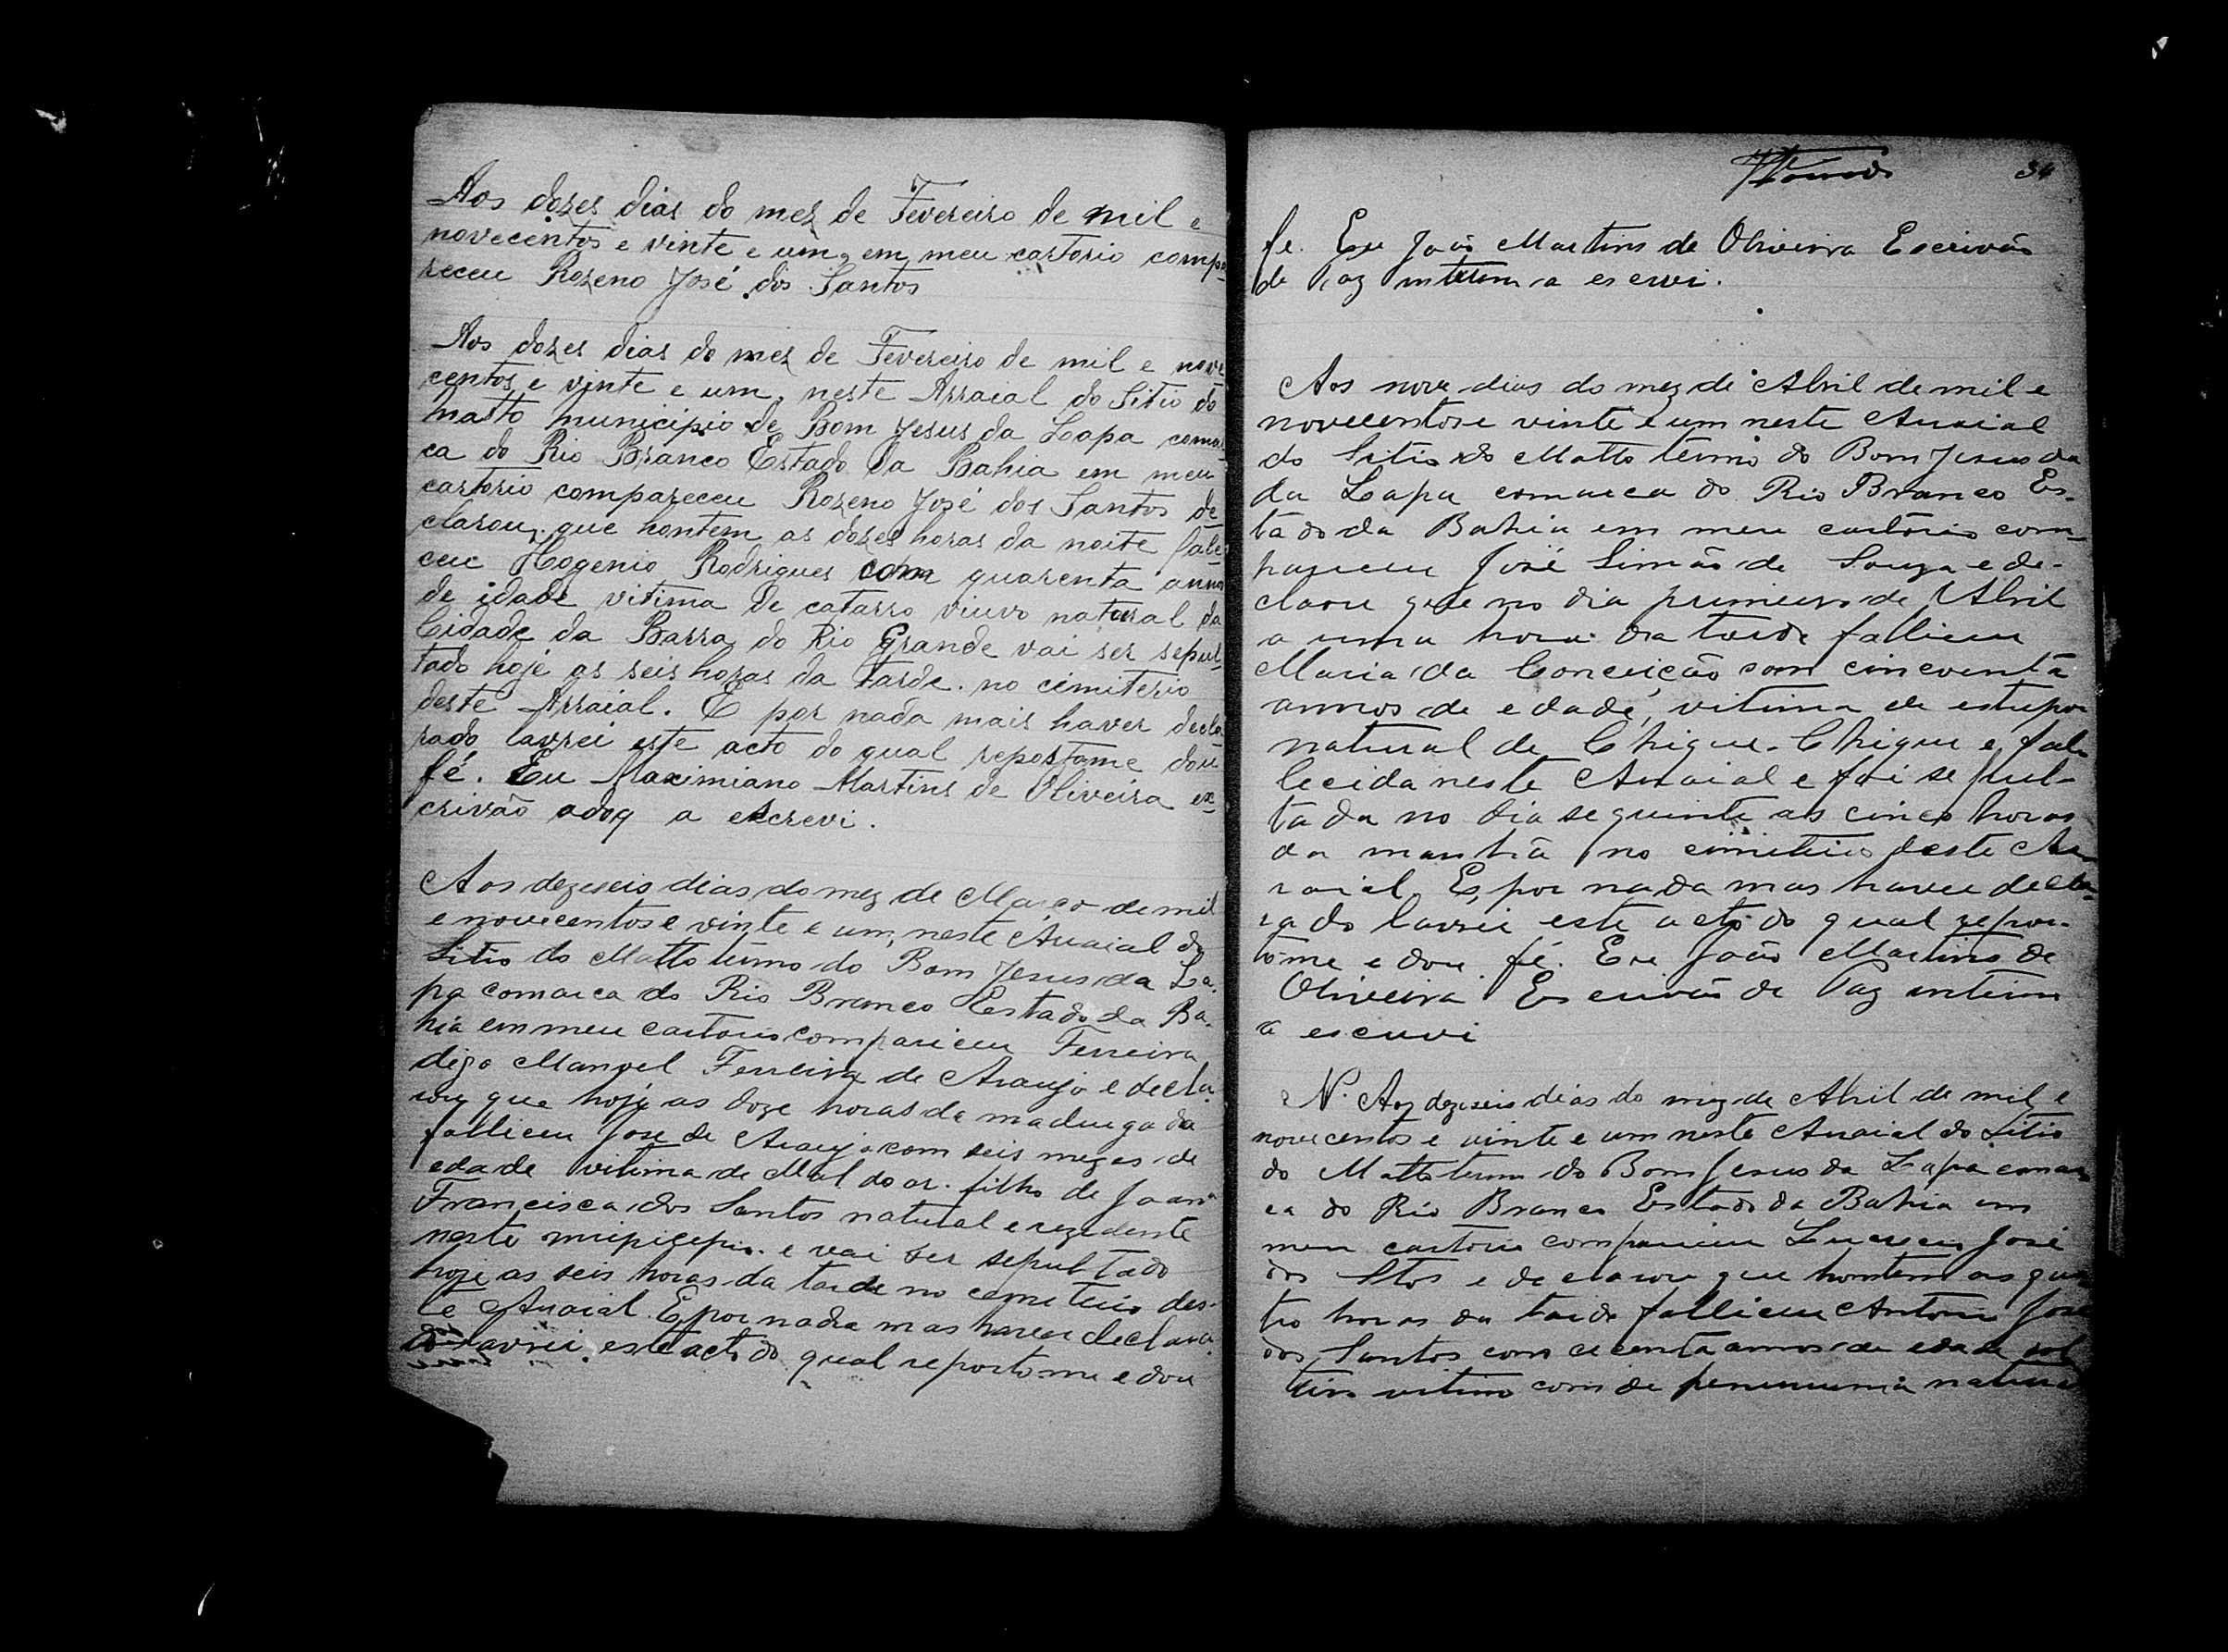 Aos dozes dias do mez de Fevereiro de mil e
novecentos e vinte e um, em meu cartorio compa-
receu Rozeno José dos Santos
Aos dozes dias do mez de Fevereiro de mil e nove
centos e vinte e um, neste Arraial do Sitio do
Matto municipio de Bom Jesus da Lapa comar-
ca do Rio Branco Estado da Bahia em meu
cartorio compareceu Rozeno José dos Santos de-
clarou que hontem as dozes horas da noite fale-
ceu Hogenio Rodrigues com quarenta annos
de idade vitima de catarro viuvo natural da
Cidade da Barra do Rio Grande vai ser sepul-
tado hoje as seis horas da tarde. no cimiterio
deste Arraial. E por nada mais haver decla-
rado lavrei este acto do qual repostome dou
fé. Eu Maximiano Martins de Oliveira es-
crivão adoq a escrevi.
Aos dezeseis dias do mez de Março de mil
e novecentos e vinte e um, neste Arraial do
Sitio do Matto termo do Bom Jesus da La-
pa comarca do Rio Branco Estado da Ba-
hia em meu cartorio compariceu Ferreira
digo Manoel Ferreira de Araujo e decla-
rou que hoje as doze horas da madrugada
falliceu José de Araujo com seis mezes de
edade vitima de Mal do ar. filho de Joana
Francisca dos Santos natural e rezidente
neste e vai ser sepultado
hoje as seis horas da tarde no cemiterio des-
te Arraial. E por nada mas haver declara-
do lavrei este acto do qual reportome e dou
34
fe. Eu João Martins de Oliveira Escrivão
de Paz interino a escrevi.
Aos nove dias do mez de Abril de mil e
novecentos e vinte e um neste Arraial
do Sitio do Matto termo do Bom Jesus da
da Lapa comarca do Rio Branco Es-
tado da Bahia em meu cartorio com-
pareceu José Simão de Souza e de-
clarou que no dia primeiro de Abril
a uma hora da tarde falliceu
Maria da Conceição com cincoenta
annos de edade, vitima de estupor
natural de Chique-Chique e fal-
lecida neste Arraial e foi sepul-
tada no dia seguinte as cinco horas
da manhã no cimiterio deste Ar-
raial. E por nada mas haver decla-
rado lavrei este acto do qual repor-
tome e dou fé. Eu João Martins de
Oliveira Escrivão de Paz interino
a escrevi
N. Aos dezeseis dias do mez de Abril de mil e
novecentos e vinte e um neste Arraial do Sitio
do Matto termo do Bom Jesus da Lapa comar
ca do Rio Branco Estado da Bahia em
meu cartorio compariceu José
dos Stos e declarou que hontem as qua
tro horas da tarde falliceu Antonio José
dos Santos com cecenta annos de edade sol
teiro vitima com de natural